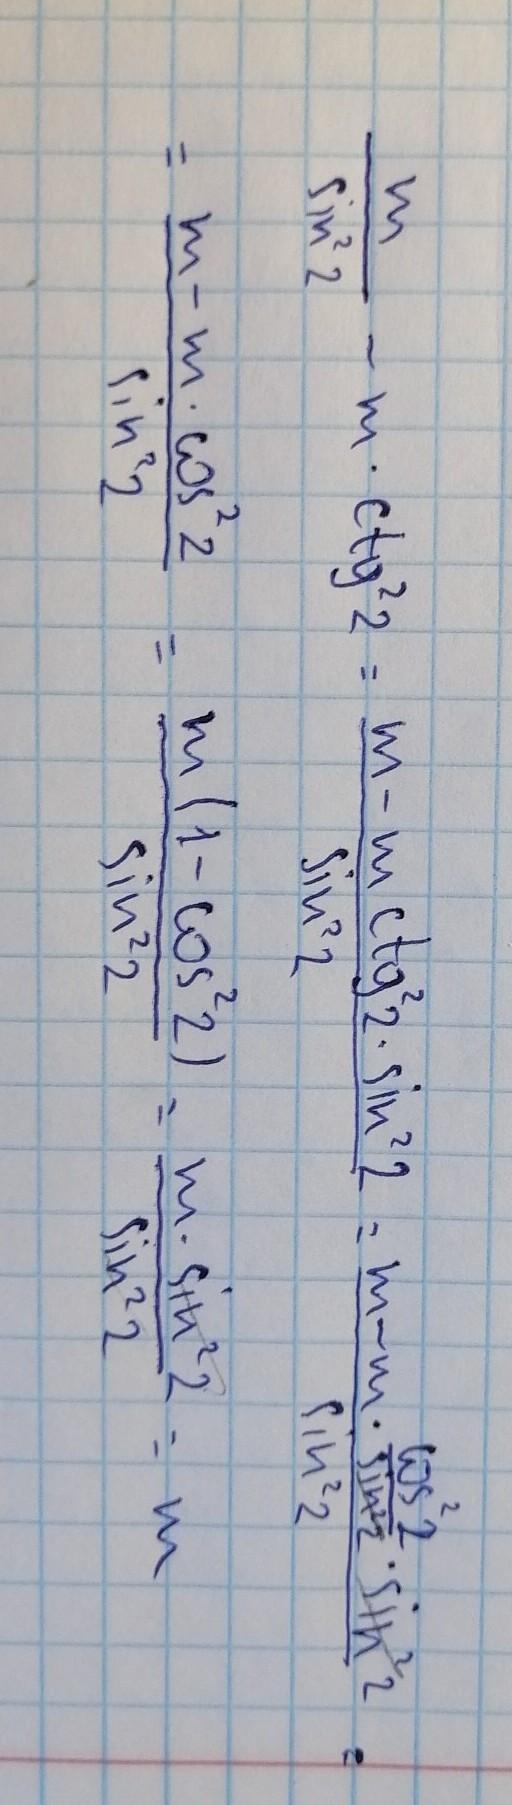 m/sin²2 - m · ctg²2 = (m - m ctg²2 · sin²2)/sin²2 = (m - m · cos²2/sin²2 · sin²2)/sin²2 =
= (m - m · cos²2)/sin²2 = m(1 - cos²2)/sin²2 = (m · sin²2)/sin²2 = m